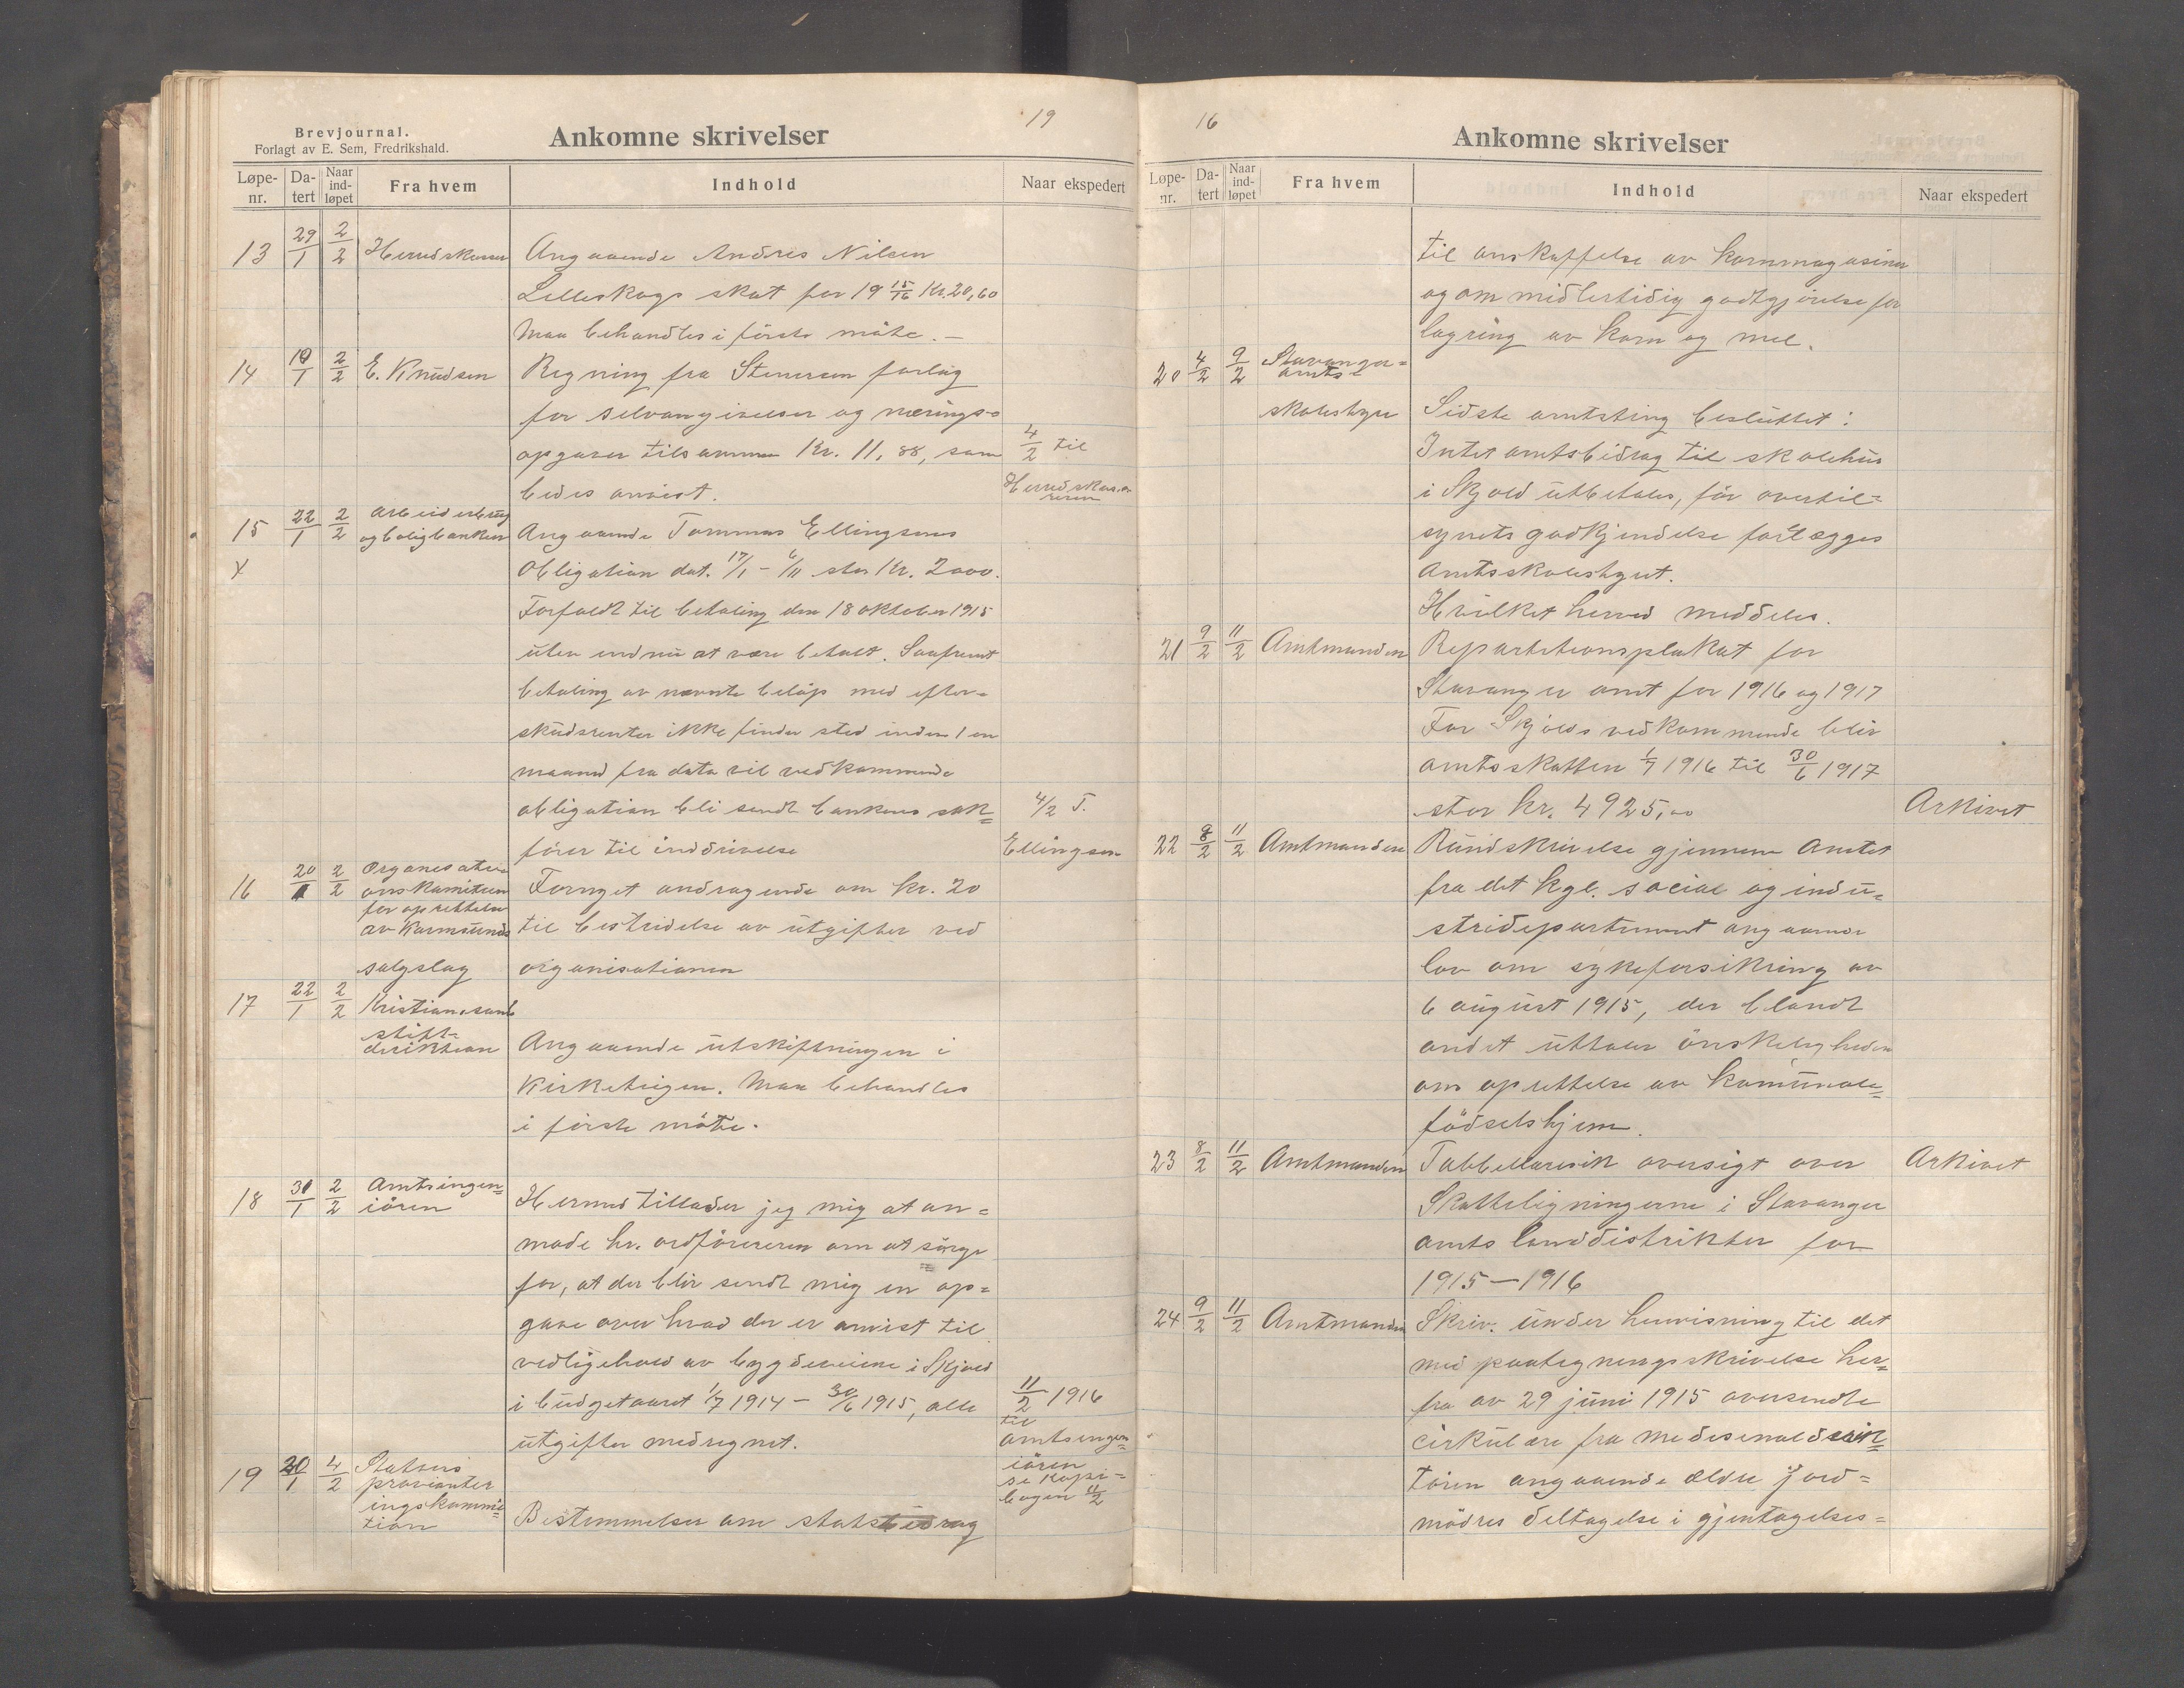 Brevjournal.
Forlagt av E. Sem, Fredrikshald.
Ankomne skrivelser
19
Løpe-nr. Da-tert Naar ind-løpet Fra hvem Indhold Naar ekspedert
13 29/1 2/2 Herredskasser Angaaende Andres Nilsen
Lilleskogs skat for 19 15/16 Kr. 20,60
Maa behandles i første møte. —
14 19/1 2/2 E. Knudsen Regning fra Stenersen forlag
for selvangivelser og nærings-
opgaver tilsammen Kr. 11,88, som
bedes anvist.
4/2 til
Herredskas-
sereren
15 22/1 2/2 Arbeiderbrug
og boligbanken Angaaende Tommas Ellingsens
X
Obligation dat. 17/1 - 6/11 stor Kr. 2000.
Forfaldt til betaling den 18 oktober 1915
uten endnu at være betalt. Saafremt
betaling av nævnte beløp med efter-
skudsrenter ikke finder sted inden 1 en
maaned fra dato vil vedkommende
obligation bli sendt bankens sak=
fører til inddrivelse
4/2 T.
Ellingsen
16 20/1 2/2 Organisati-
onskomiteen
for oprettelse
av Karmsunds
salgslag
Fornyet andragende om kr. 20
til bestridelse av utgifter ved
organisationen
17 22/1 2/2 Kristiansands
stift-
direktion
Angaaende utskiftningen i
Kirketeigen. Maa behandles
i første møte.
18 31/1 2/2 Amtsingen=
iøren
Hermed tillader jeg mig at an=
mode hr. ordføreren om at sørge
for, at der blir sendt mig en op=
gave over hvad der er anvist til
vedligehold av bygdeveiene i Skjold
i budgetaaret 1/7 1914 - 30/6 1915, alle
utgifter medregnet.
11/2 1916
til
amtsingen=
iøren
se kopi=
bogen 11/2
19 20/1 4/2 Statens
provianter
ingskommis=
tion
Bestemmelser om statsbidrag
16
Ankomne skrivelser
Løpe-nr. Da-tert Naar ind-løpet Fra hvem Indhold Naar ekspedert
til anskaffelse av kornmagasiner
og om midlertidig godtgjørelse for
lagring av korn og mel.
20 4/2 9/2 Stavanger=
amts-
skolestyre
Sidste amtsting besluttet:
Intet amtsbidrag til skolehus
i Skjold utbetales, før overtil=
synets godkjendelse forelægges
Amtsskolestyret.
Hvilket herved meddeles.
21 9/2 11/2 Amtmanden Repartitionsplakat for
Stavanger amt for 1916 og 1917
For Skjolds vedkommende blir
amtsskatten 1/7 1916 til 30/6 1917
stor kr. 4925,00 Arkivet
22 8/2 11/2 Amtmanden Rundskrivelse gjennem Amtet
fra det kgl. social og indu-
stridepartement angaaende
lov om sykeforsikring av
6 august 1915, der blandt
andet uttaler ønskeligheden
om oprettelse av Komunale=
fødselshjem.
23 8/2 11/2 Amtmanden Tabbellarisik oversigt over Arkivet
Skatteligningerne i Stavanger
amts landdistrikter for
1915—1916
24 9/2 11/2 Amtmanden Skriv. under henvisning til det
med paategningsskrivelse her=
fra av 29 juni 1915 oversendte
cirkulære fra medisinaldirik=
tøren angaaende ældre jord=
mødres deltagelse i gjentagelses=